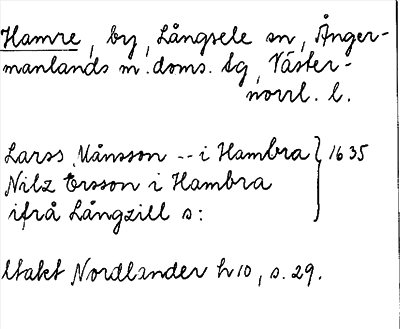 Hamre, by, Långsele sn, Ånger-
manlands m. doms. tg, Väster-
norrl. l.
Larss Månsson -- i Hambra } 1635
Nilz Ersson i Hambra
ifrå Långzill s:
Utakt Nordlander h 10, s. 29.